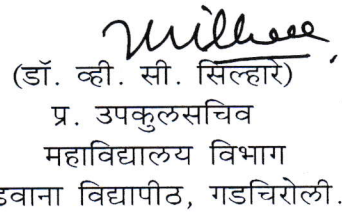 (डॉ. व्ही. सी. सिल्हारे)
प्र. उपकुलसचिव
महाविद्यालय विभाग
डवाना विद्यापीठ, गडचिरोली.